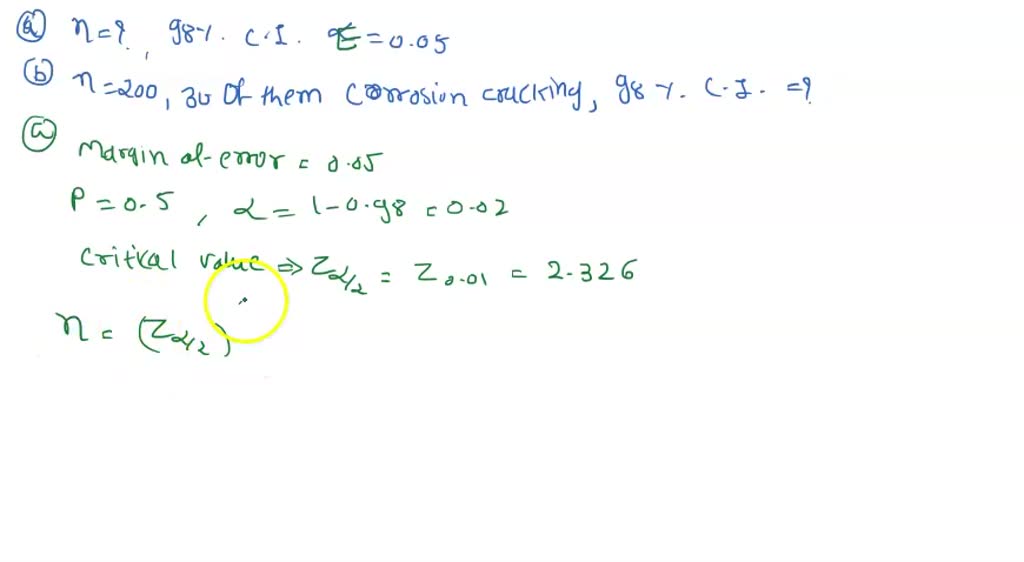 (a) n=?, 98%. C.I. E=0.05
(b) n=200, 30 Of them Corrosion cracking, 98%. C.I. =?
(a) Margin of-error = 0.05
P=0.5, α = 1-0.98 = 0.02
Critical value ⇒ Zα/2 = Z0.01 = 2.326
n = (Zα/2)